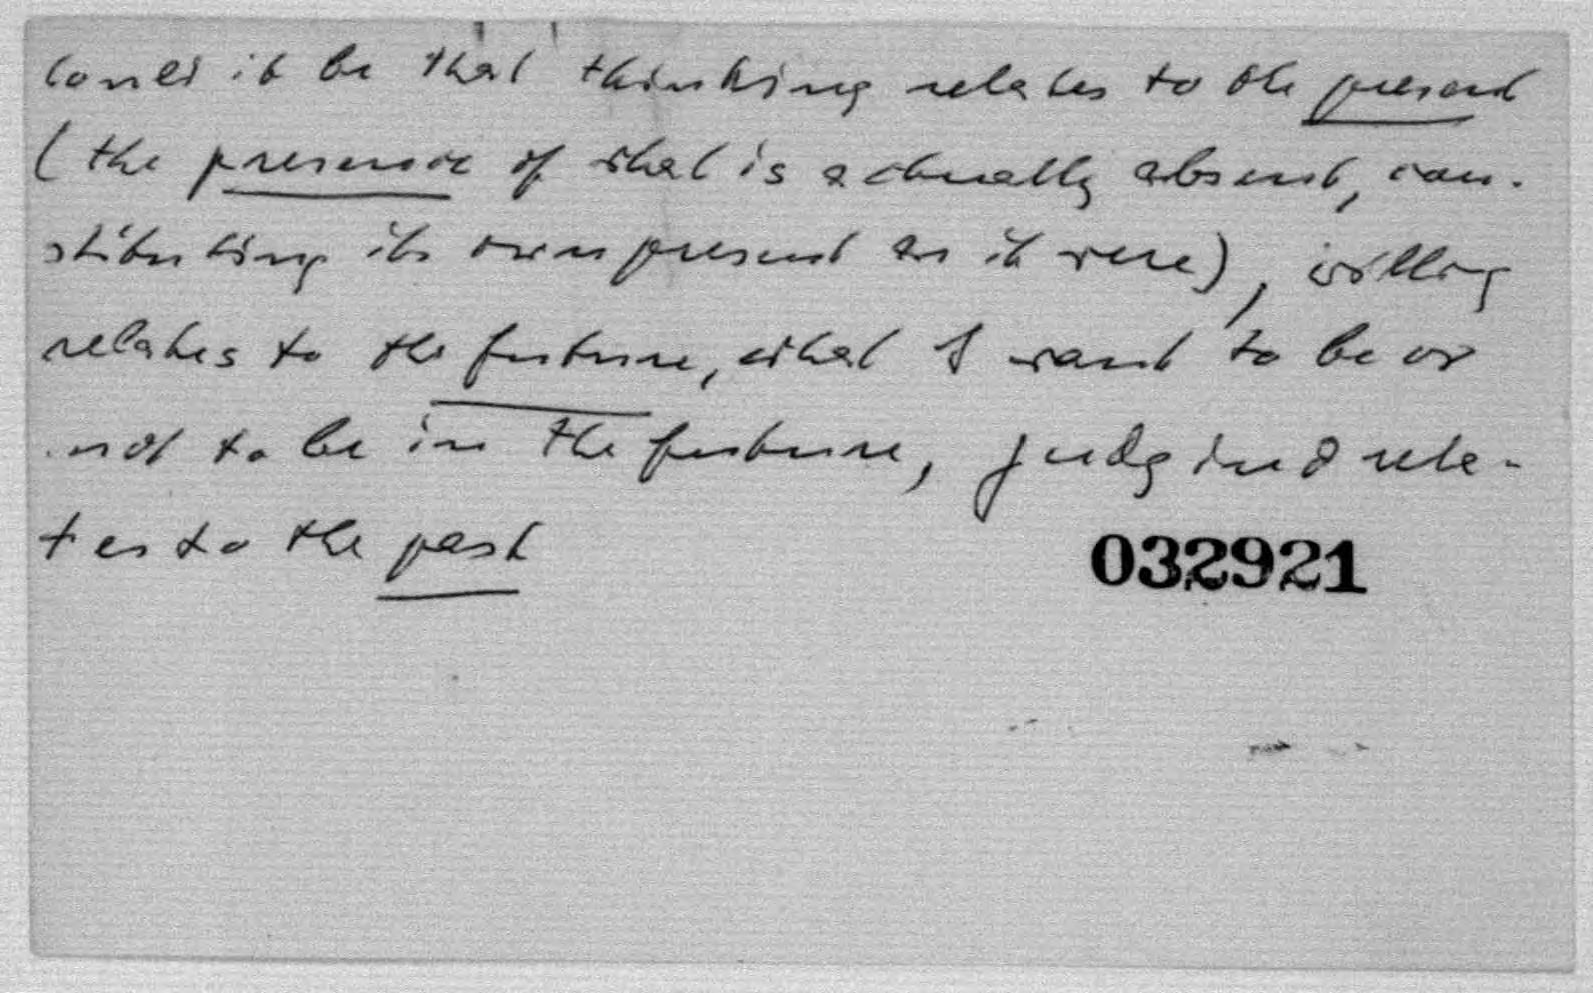 Could it be that thinking relates to the present
(the presence of what is actually absent, con-
stituting its own present as it were), willing
relates to the future, what I want to be or
not to be in the future, judging rela-
tes to the past
032921